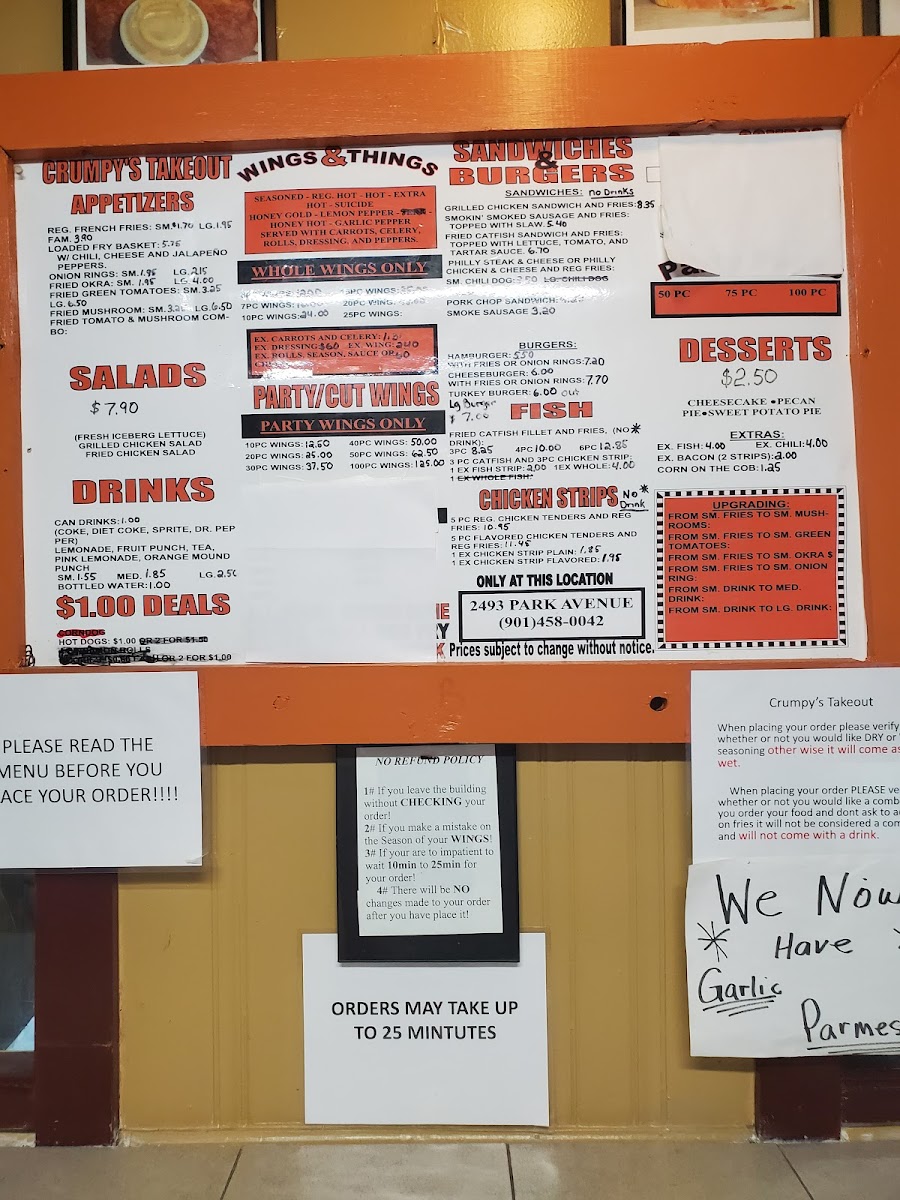 CRUMPY'S TAKEOUT
APPETIZERS
REG. FRENCH FRIES: SM.$1.70 LG.1.95
FAM. 3.90
LOADED FRY BASKET: 5.75
W/ CHILI, CHEESE AND JALAPEÑO
PEPPERS.
ONION RINGS: SM. 1.95 LG. 2.15
FRIED OKRA: SM. 1.95 LG. 4.00
FRIED GREEN TOMATOES: SM. 3.25
LG. 6.50
FRIED MUSHROOM: SM. 3.25 LG. 6.50
FRIED TOMATO & MUSHROOM COM-
BO:
SALADS
$7.90
(FRESH ICEBERG LETTUCE)
GRILLED CHICKEN SALAD
FRIED CHICKEN SALAD
DRINKS
CAN DRINKS: 1.00
(COKE, DIET COKE, SPRITE, DR. PEP
PER)
LEMONADE, FRUIT PUNCH, TEA,
PINK LEMONADE, ORANGE MOUND
PUNCH
SM. 1.55 MED. 1.85 LG. 2.50
BOTTLED WATER: 1.00
$1.00 DEALS
CORNDOG
HOT DOGS: $1.00 OR 2 FOR $1.50
OR 2 FOR $1.00
WINGS & THINGS
SEASONED - REG. HOT - HOT - EXTRA
HOT - SUICIDE
HONEY GOLD - LEMON PEPPER -
HONEY HOT - GARLIC PEPPER
SERVED WITH CARROTS, CELERY,
ROLLS, DRESSING, AND PEPPERS.
WHOLE WINGS ONLY
7PC WINGS:
10PC WINGS: 24.00 25PC WINGS:
EX. CARROTS AND CELERY:
EX. DRESSING: .60 EX. WING: 2.40
EX. ROLLS, SEASON, SAUCE OR
PARTY/CUT WINGS
PARTY WINGS ONLY
10PC WINGS: 12.50 40PC WINGS: 50.00
20PC WINGS: 25.00 50PC WINGS: 62.50
30PC WINGS: 37.50 100PC WINGS: 125.00
SANDWICHES
&
BURGERS
SANDWICHES: no Drinks
GRILLED CHICKEN SANDWICH AND FRIES: 8.35
SMOKIN' SMOKED SAUSAGE AND FRIES:
TOPPED WITH SLAW. 5.40
FRIED CATFISH SANDWICH AND FRIES:
TOPPED WITH LETTUCE, TOMATO, AND
TARTAR SAUCE. 6.70
PHILLY STEAK & CHEESE OR PHILLY
CHICKEN & CHEESE AND REG FRIES:
SM. CHILI DOG: LG. CHILI DOG
PORK CHOP SANDWICH:
SMOKE SAUSAGE 3.20
BURGERS:
HAMBURGER: 5.50
WITH FRIES OR ONION RINGS: 7.20
CHEESEBURGER: 6.00
WITH FRIES OR ONION RINGS: 7.70
TURKEY BURGER: 6.00 out
Lg Burger
$ 7.00
FISH
FRIED CATFISH FILLET AND FRIES, (NO*
DRINK):
3PC 8.25 4PC 10.00 6PC 12.85
3 PC CATFISH AND 3PC CHICKEN STRIP:
1 EX FISH STRIP: 2.00 1EX WHOLE: 4.00
1 EX WHOLE FISH:
CHICKEN STRIPS No * Drink
5 PC REG. CHICKEN TENDERS AND REG
FRIES: 10.95
5 PC FLAVORED CHICKEN TENDERS AND
REG FRIES: 11.45
1 EX CHICKEN STRIP PLAIN: 1.85
1 EX CHICKEN STRIP FLAVORED: 1.95
ONLY AT THIS LOCATION
2493 PARK AVENUE
(901)458-0042
Prices subject to change without notice.
50 PC 75 PC 100 PC
DESSERTS
$2.50
CHEESECAKE •PECAN
PIE•SWEET POTATO PIE
EXTRAS:
EX. FISH: 4.00 EX. CHILI: 4.00
EX. BACON (2 STRIPS): 2.00
CORN ON THE COB: 1.25
UPGRADING:
FROM SM. FRIES TO SM. MUSH-
ROOMS:
FROM SM. FRIES TO SM. GREEN
TOMATOES:
FROM SM. FRIES TO SM. OKRA $
FROM SM. FRIES TO SM. ONION
RING:
FROM SM. DRINK TO MED.
DRINK:
FROM SM. DRINK TO LG. DRINK:
PLEASE READ THE
MENU BEFORE YOU
ACE YOUR ORDER!!!!
NO REFUND POLICY
1# If you leave the building
without CHECKING your
order!
2# If you make a mistake on
the Season of your WINGS!
3# If your are to impatient to
wait 10min to 25min for
your order!
4# There will be NO
changes made to your order
after you have place it!
ORDERS MAY TAKE UP
TO 25 MINTUTES
Crumpy's Takeout
When placing your order please verify
whether or not you would like DRY or
seasoning other wise it will come as
wet.
When placing your order PLEASE ve
whether or not you would like a comb
you order your food and dont ask to a
on fries it will not be considered a com
and will not come with a drink.
We Now
* Have
Garlic
Parmes